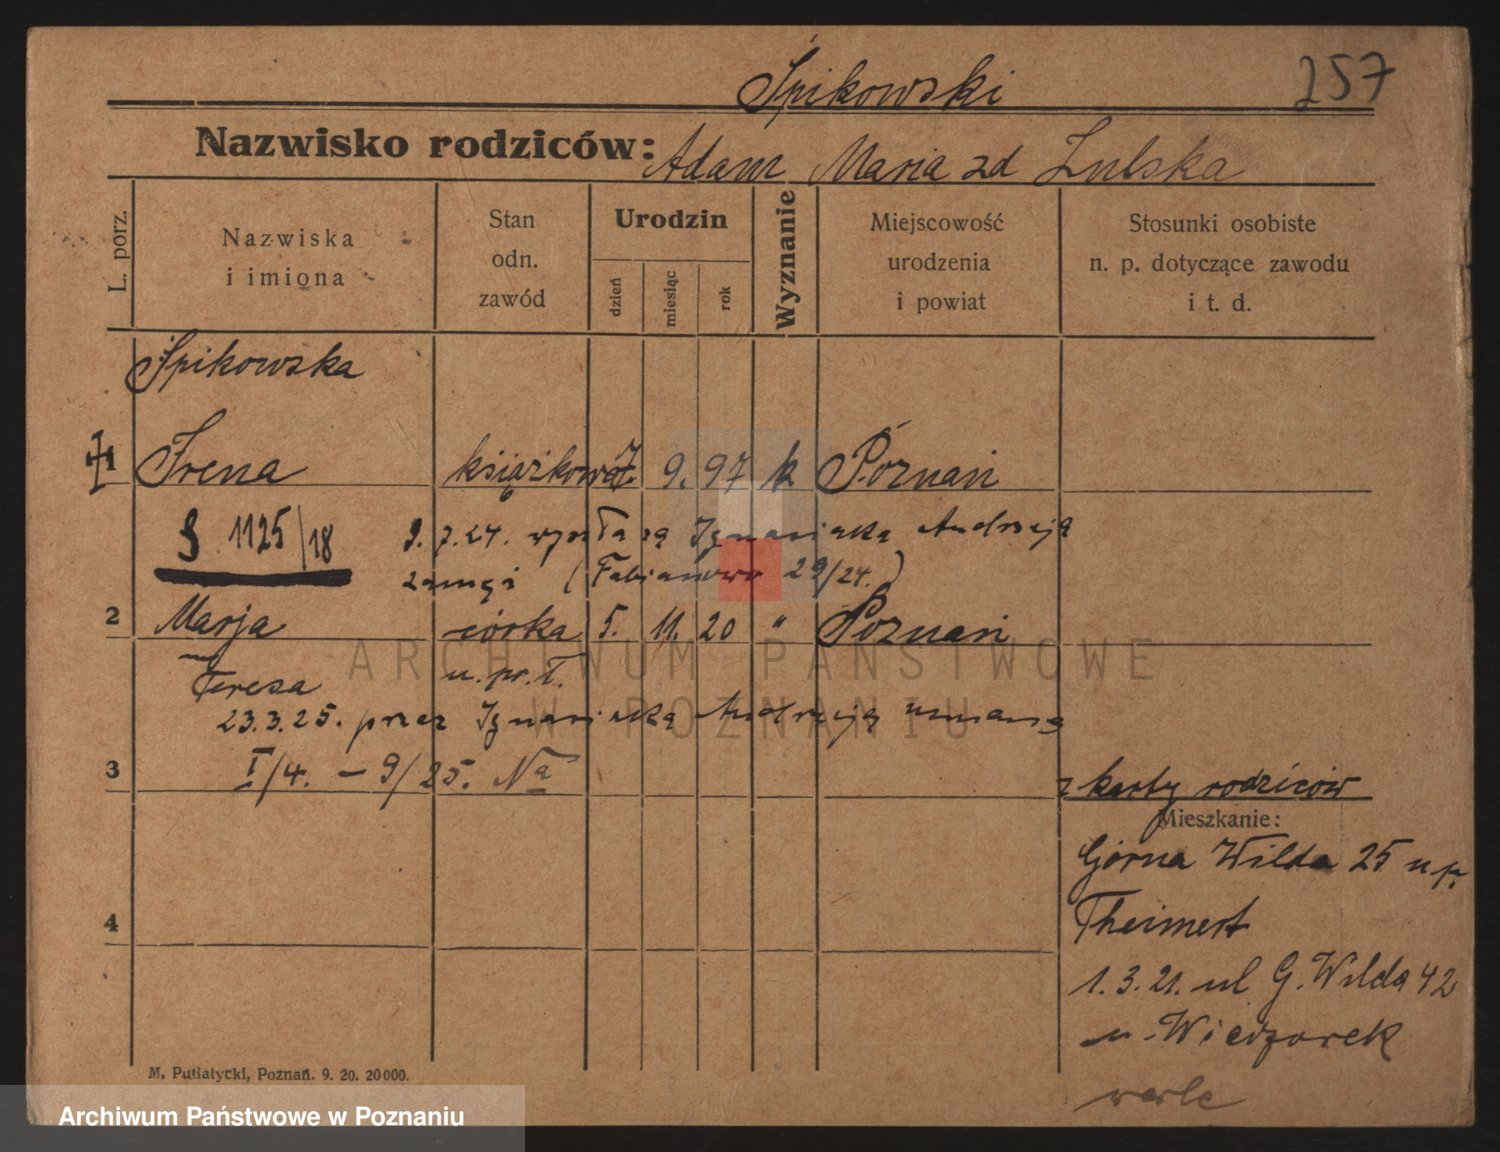 Śpikowski
257
Nazwisko rodziców: Adam Maria zd Zulska
L. porz.
Nazwiska
i imiona
Stan
odn.
zawód
Urodzin
dzień
miesiąc
rok
Wyznanie
Miejscowość
urodzenia
i powiat
Stosunki osobiste
n. p. dotyczące zawodu
i t. d.
Śpikowska
1 Irena książkowa 7. 9. 97 k Poznań
1125/18 9.7.24. wyszła za Ignasiaka Andrzeja
zamąż (Fabianowo 29/24.)
2 Marja córka 5. 11. 20 " Poznań
Teresa
23.3.25. przez Ignasiaka Andrzeja uznana
3 I/4. – 9/25. Na
z karty rodziców
Mieszkanie:
Górna Wilda 25 u p.
Theimert
4
1.3.21. ul G. Wilda 42
u. Wieczorek
M. Putiatycki, Poznań. 9. 20. 20000.
ARCHIWUM PAŃSTWOWE
W POZNANIU
Archiwum Państwowe w Poznaniu